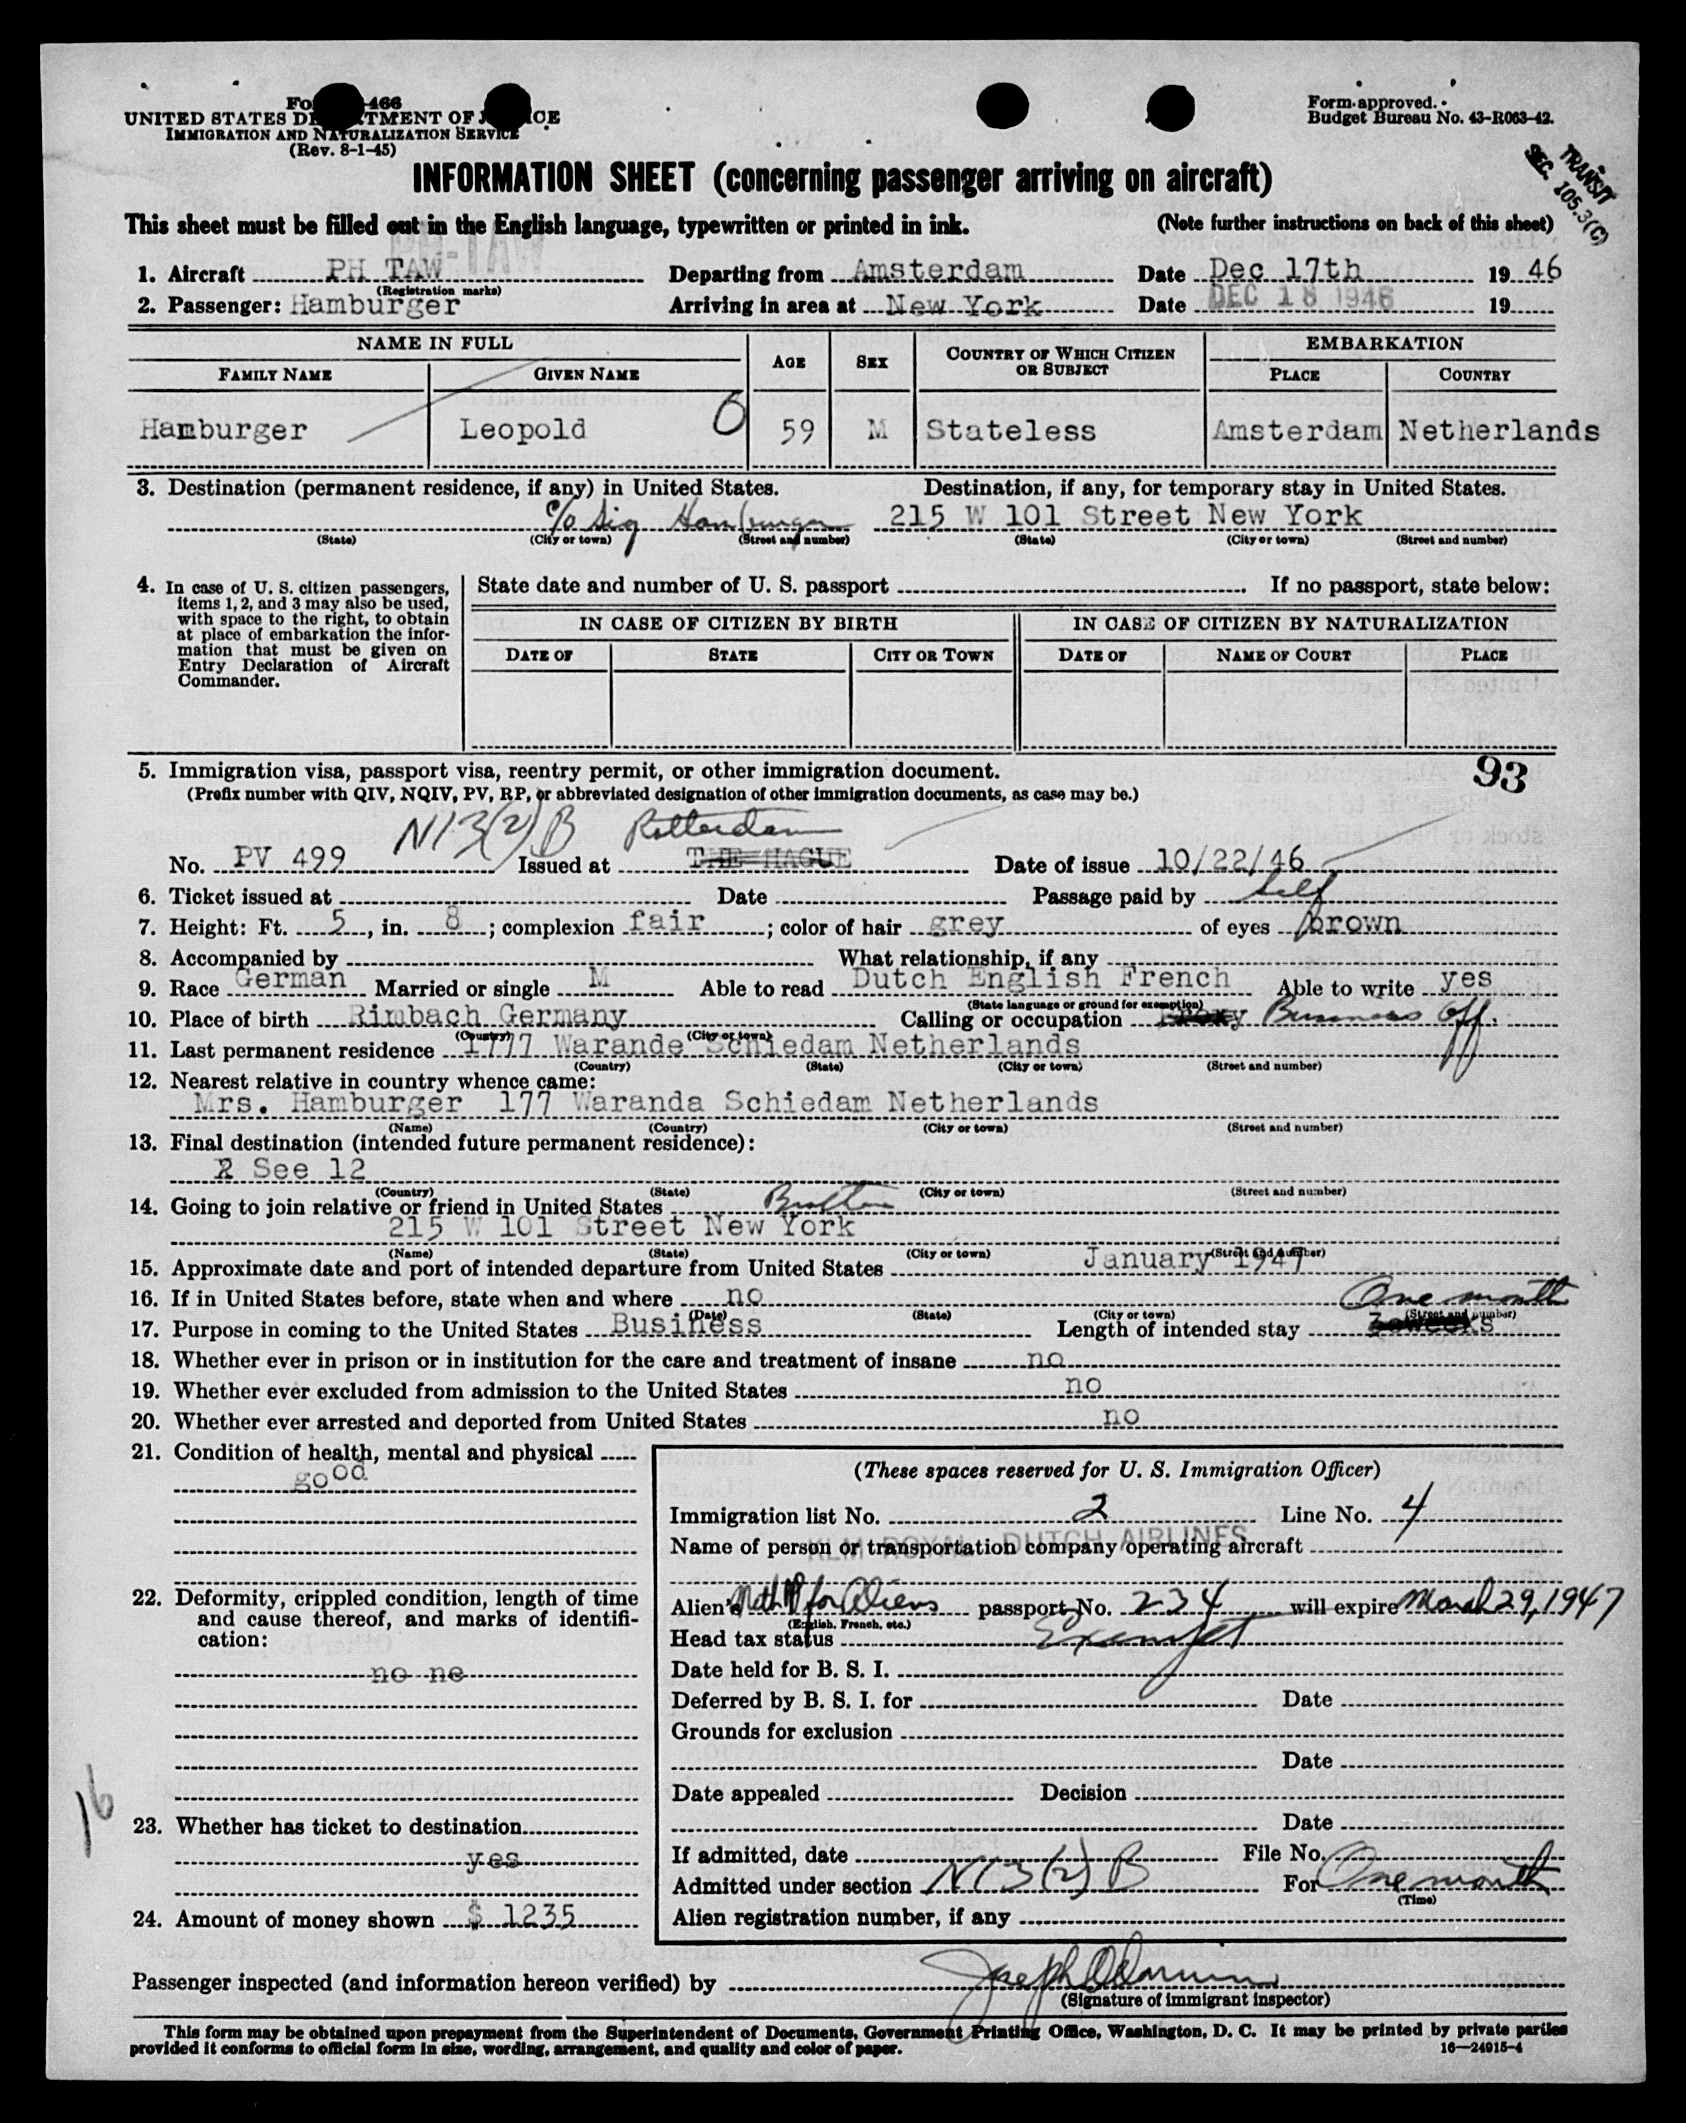 Form approved.
UNITED STATES DEPARTMENT OF JUSTICE
Budget Bureau No. 43-R063-42.
IMMIGRATION AND NATURALIZATION SERVICE
(Rev. 8-1-45)
TRANSIT
SEC. 105.3(C)
INFORMATION SHEET (concerning passenger arriving on aircraft)
This sheet must be filled out in the English language, typewritten or printed in ink. (Note further instructions on back of this sheet)
1. Aircraft PH TAW Departing from Amsterdam Date Dec 17th 19 46
(Registration marks)
2. Passenger: Hamburger Arriving in area at New York Date DEC 18 1946 19
NAME IN FULL AGE SEX COUNTRY OF WHICH CITIZEN OR SUBJECT EMBARKATION
FAMILY NAME GIVEN NAME PLACE COUNTRY
Hamburger Leopold 59 M Stateless Amsterdam Netherlands
3. Destination (permanent residence, if any) in United States. Destination, if any, for temporary stay in United States.
c/o Sig Hamburger 215 W 101 Street New York
(State) (City or town) (Street and number) (State) (City or town) (Street and number)
4. In case of U. S. citizen passengers, items 1, 2, and 3 may also be used, with space to the right, to obtain at place of embarkation the information that must be given on Entry Declaration of Aircraft Commander.
State date and number of U. S. passport . If no passport, state below:
IN CASE OF CITIZEN BY BIRTH IN CASE OF CITIZEN BY NATURALIZATION
DATE OF STATE CITY OR TOWN DATE OF NAME OF COURT PLACE
5. Immigration visa, passport visa, reentry permit, or other immigration document. 93
(Prefix number with QIV, NQIV, PV, RP, or abbreviated designation of other immigration documents, as case may be.)
N13(2)B Rotterdam
No. PV 499 Issued at THE HAGUE Date of issue 10/22/46
6. Ticket issued at Date Passage paid by Self
7. Height: Ft. 5, in. 8; complexion fair; color of hair grey of eyes brown
8. Accompanied by What relationship, if any
9. Race German Married or single M Able to read Dutch English French Able to write yes
(State language or ground for exemption)
10. Place of birth Rimbach Germany Calling or occupation Business Off.
(Country) (City or town)
11. Last permanent residence 1777 Warande Schiedam Netherlands
(Country) (State) (City or town) (Street and number)
12. Nearest relative in country whence came:
Mrs. Hamburger 177 Waranda Schiedam Netherlands
(Name) (Country) (City or town) (Street and number)
13. Final destination (intended future permanent residence):
See 12
(Country) (State) (City or town) (Street and number)
14. Going to join relative or friend in United States
215 W 101 Street New York
(Name) (State) (City or town) (Street and number)
15. Approximate date and port of intended departure from United States January 1947
16. If in United States before, state when and where no
(Date) (State) (City or town) (Street and number)
17. Purpose in coming to the United States Business Length of intended stay One month
18. Whether ever in prison or in institution for the care and treatment of insane no
19. Whether ever excluded from admission to the United States no
20. Whether ever arrested and deported from United States no
21. Condition of health, mental and physical
good
22. Deformity, crippled condition, length of time and cause thereof, and marks of identification:
no ne
16
23. Whether has ticket to destination
yes
24. Amount of money shown $ 1235
(These spaces reserved for U. S. Immigration Officer)
Immigration list No. 2 Line No. 4
Name of person or transportation company operating aircraft
KLM ROYAL DUTCH AIRLINES
Alien's Neth PP for Aliens passport No. 234 will expire March 29, 1947
(English, French, etc.)
Head tax status Exempt
Date held for B. S. I.
Deferred by B. S. I. for Date
Grounds for exclusion
Date
Date appealed Decision
Date
If admitted, date File No.
Admitted under section N13(2)B For One month
(Time)
Alien registration number, if any
Passenger inspected (and information hereon verified) by
(Signature of immigrant inspector)
This form may be obtained upon prepayment from the Superintendent of Documents, Government Printing Office, Washington, D. C. It may be printed by private parties
provided it conforms to official form in size, wording, arrangement, and quality and color of paper. 16—24915-4